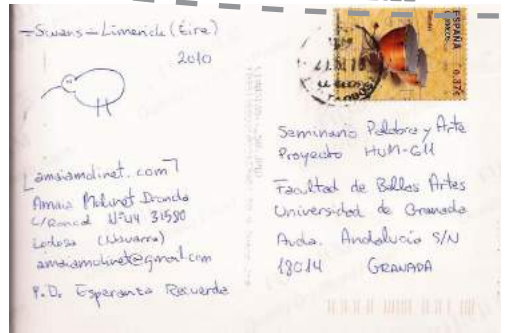 = Swans = Limerick (Éire)
2010
amaiamolinet.com
Amaia Molinet Dronda
C/Roncal Nº44 31580
Lodosa (Navarra)
amaiamolinet@gmail.com
P.D. Esperanto Recuerda
ESPAÑA
CORREOS
0,37€
Seminario Palabra y Arte
Proyecto HUM-611
Facultad de Bellas Artes
Universidad de Granada
Avda. Andalucía S/N
18014 GRANADA